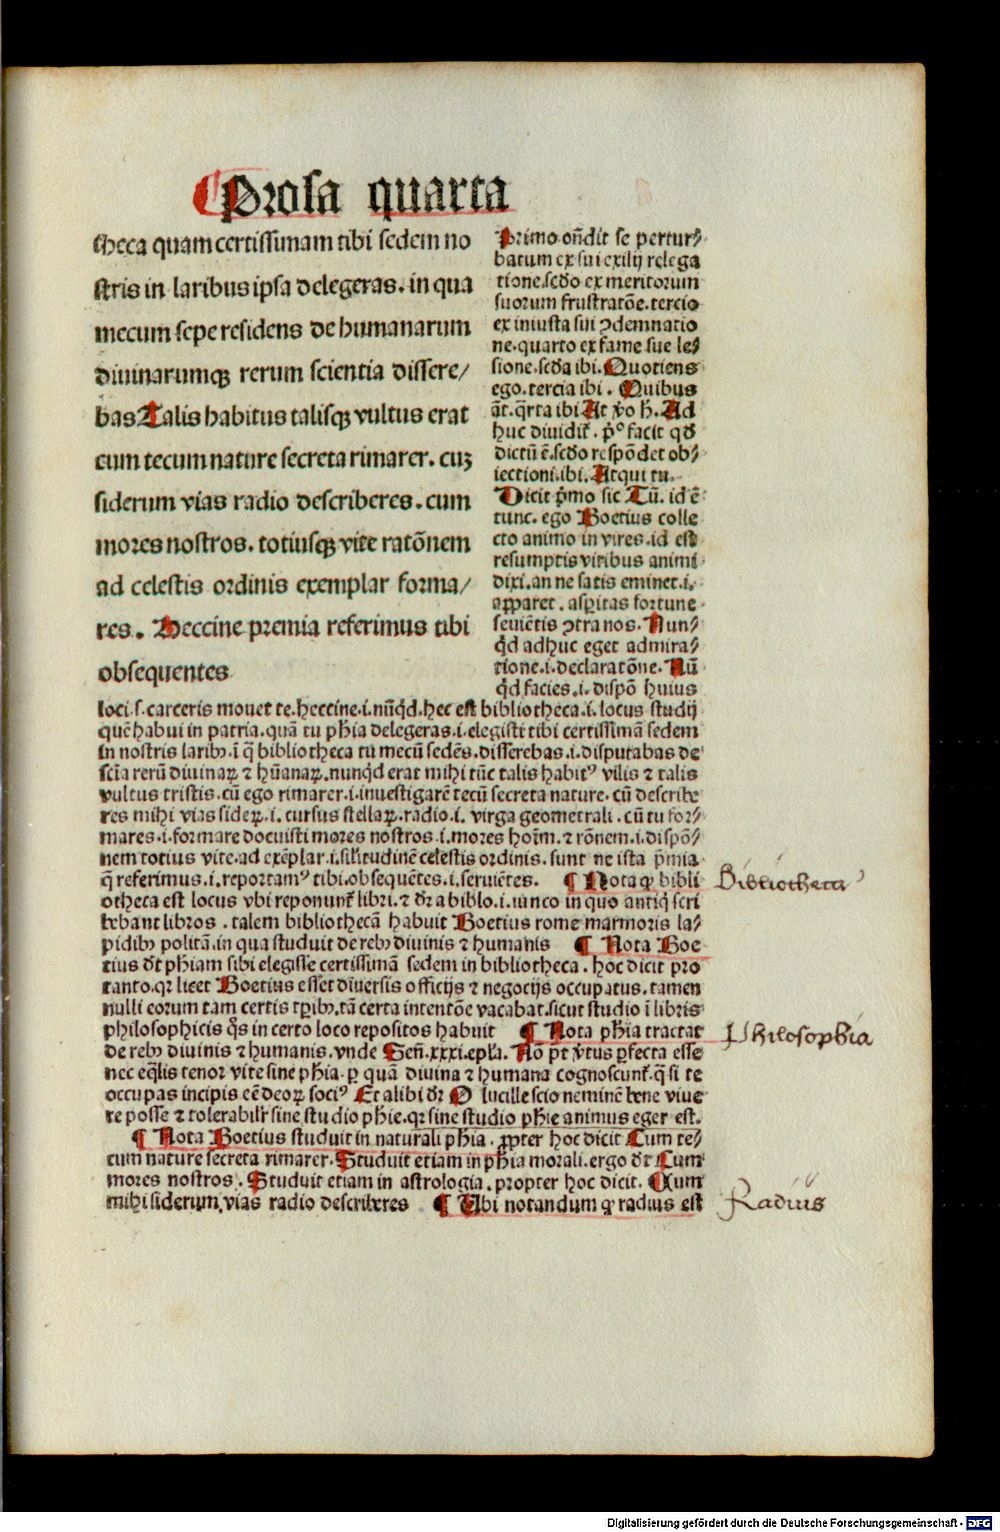 ¶ Prosa quarta
theca quam certissimam tibi sedem no
stris in laribus ipsa delegeras. in qua
mecum sepe residens de humanarum
diuinarumqꝫ rerum scientia dissere/
bas Talis habitus talisqꝫ vultus erat
cum tecum nature secreta rimarer. cuꝫ
siderum vias radio describeres. cum
mores nostros. totiusqꝫ vite ratõnem
ad celestis ordinis exemplar forma/
res. Heccine premia referimus tibi
obsequentes
Primo oñdit se pertur⸗
batum ex sui exilij relega
tione. scđo ex meritorum
suorum frustratõe. tercio
ex iniusta sui ꝯdemnatio
ne. quarto ex fame sue le⸗
sione. scđa ibi. Quotiens
ego. tercia ibi. Quibus
āt. q̄rta ibi At v̊o h̄. Ad
huc diuidit̃. pº facit qđ
dictū ē. scđo respõdet ob⸗
iectioni. ibi. Atqui tu.
Dicit p̄mo sic Tū. id ē
tunc. ego Boetius colle
cto animo in vires. id est
resumptis viribus animi
dixi. an ne satis eminet. i.
apparet. asꝑitas fortune
seuiẽtis ꝯtra nos. Nun⸗
qͥd adhuc eget admira⸗
tione. i. declaratõne. Nū
qͥd facies. i. dispõ huius
loci. s. carceris mouet te. heccine. i. nūqͥd. hec est bibliotheca. i. locus studij
quē habui in patria. quā tu ph̄ia delegeras. i. elegisti tibi certissimā sedem
in nostris laribꝰ. i. q̄ bibliotheca tu mecū sedēs. disserebas. i. disputabas de
scīa rerū diuinaꝝ ⁊ hūanaꝝ. nunqͥd erat mihi tūc talis habitꝰ vilis ⁊ talis
vultus tristis. cū ego rimarer. i. inuestigarē tecū secreta nature. cū describe
res mihi vias sideꝝ. i. cursus stellaꝝ. radio. i. virga geometrali. cū tu for⸗
mares. i. formare docuisti mores nostros. i. mores hoīm. ⁊ rōnem. i. dispõ⸗
nem totius vite. ad exēplar. i. silitudinē celestis ordinis. sunt ne ista p̄mia
q̄ referimus. i. reportamꝰ tibi. obsequētes. i. seruiētes. ¶ Nota ꝙ bibli
otheca est locus vbi reponunt̃ libri. ⁊ dr̄ a biblo. i. iunco in quo antiqͥ scri
bebant libros. talem bibliothecā habuit Boetius rome marmoris la⸗
pidibꝰ politā. in qua studuit de rebꝰ diuinis ⁊ humanis ¶ Nota Boe
tius dt̄ ph̄iam sibi elegisse certissimā sedem in bibliotheca. hoc dicit pro
tanto. qr licet Boetius esset diuersis officijs ⁊ negocijs occupatus. tamen
nulli eorum tam certis tꝑibꝰ. tā certa intentõe vacabat. sicut studio ī libris
philosophicis q̊s in certo loco repositos habuit ¶ Nota ph̄ia tractat
de rebꝰ diuinis ⁊ humanis. vnde Señ. xxxi. epl̄a. Nō pt̄ v̊tus ꝑfecta esse
nec eq̄lis tenor vite sine ph̄ia. ꝑ quā diuina ⁊ humana cognoscunt̃. q̄ si te
occupas incipis eē deoꝝ sociꝰ Et alibi dr̄ O lucille scio neminē bene viue
re posse ⁊ tolerabilr̄ sine studio ph̄ie. qr sine studio ph̄ie animus eger est.
¶ Nota Boetius studuit in naturali ph̄ia. ꝓpter hoc dicit Cum te⸗
cum nature secreta rimarer. Studuit etiam in ph̄ia morali. ergo dt̄ Cum
mores nostros. Studuit etiam in astrologia. propter hoc dicit. Cum
mihi siderum vias radio describeres ¶ Ubi notandum ꝙ radius est
Bibliotheca
Philosophia
Radius
Digitalisierung gefördert durch die Deutsche Forschungsgemeinschaft - DFG